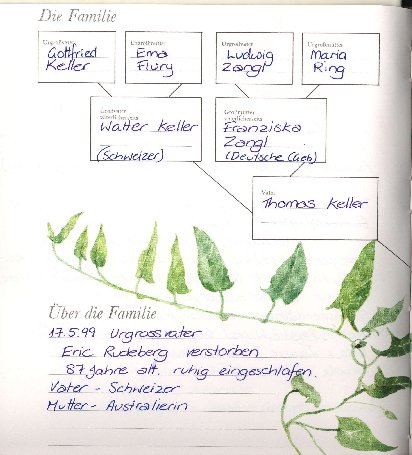 Die Familie
Urgroßvater
Gottfried
Keller
Urgroßmutter
Erna
Flury
Urgroßvater
Ludwig
Zangl
Urgroßmutter
Maria
Ring
Großvater
väterlicherseits
Walter Keller
(Schweizer)
Großmutter
väterlicherseits
Franziska
Zangl
(Deutsche Geb)
Vater
Thomas Keller
Über die Familie
17.5.99 Urgrossvater
Eric Rudeberg verstorben
87 Jahre alt. ruhig eingeschlafen.
Vater - Schweizer
Mutter - Australierin